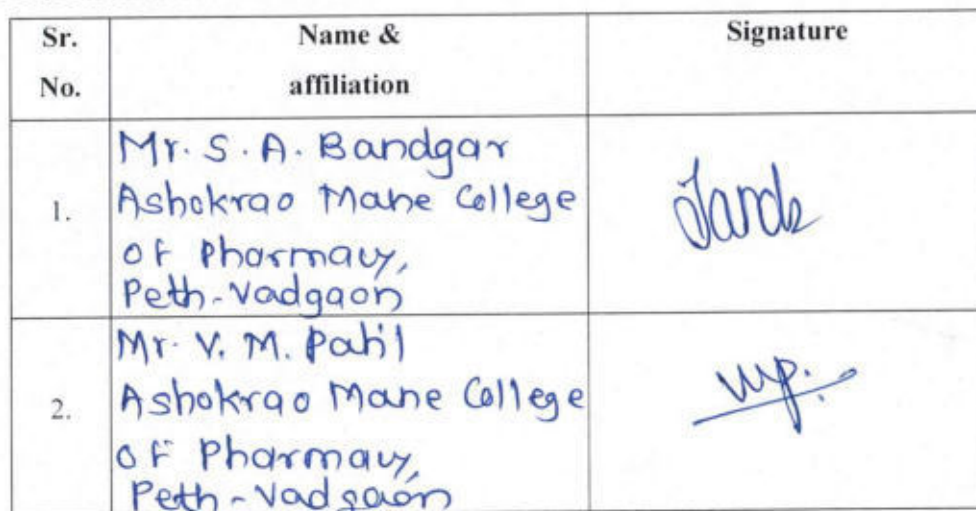 Sr. No.
Name & affiliation
Signature
1.
Mr. S. A. Bandgar
Ashokrao Mane College
of Pharmacy,
Peth-Vadgaon
2.
Mr. V. M. Patil
Ashokrao Mane College
of Pharmacy,
Peth-Vadgaon